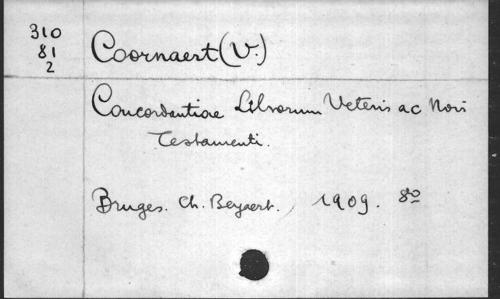 310
81
2
Coornaert (V.)
Concordantiae Librorum Veteris ac Novi
Testamenti.
Bruges. Ch. Beyaert. , 1909. 8º